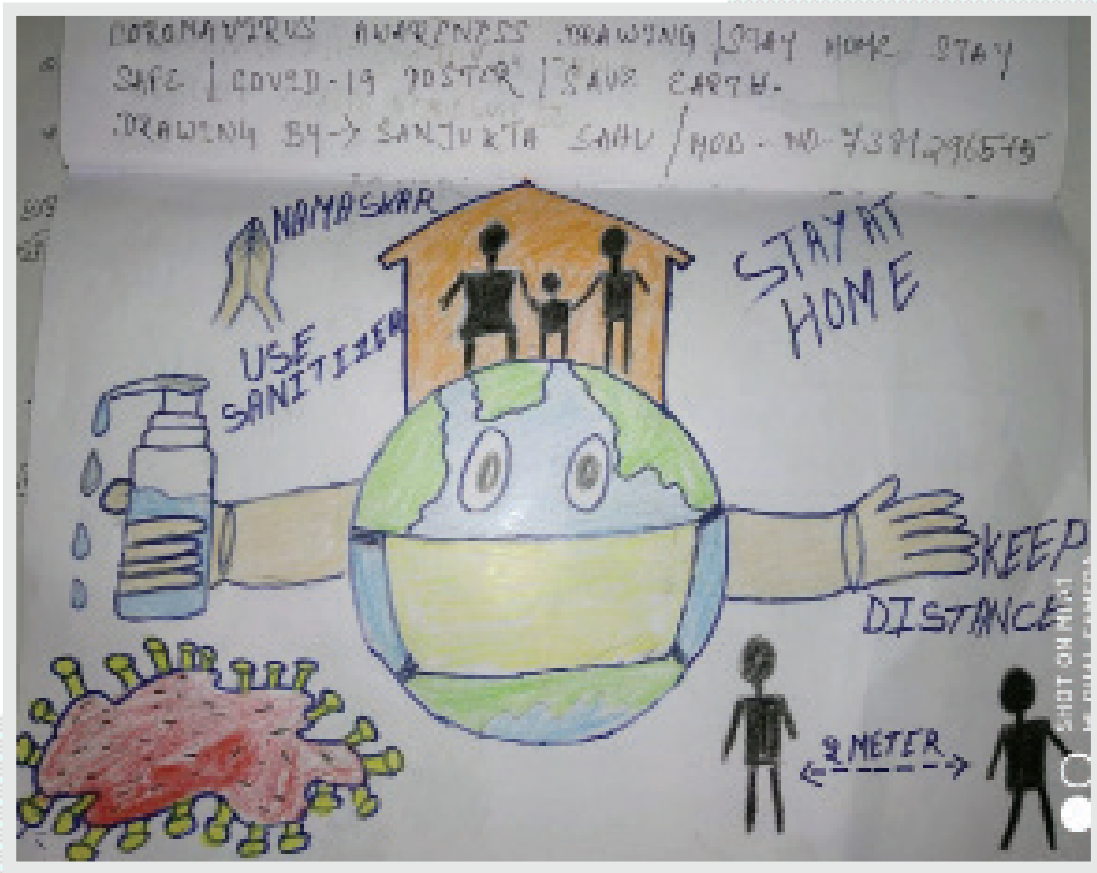 CORONAVIRUS AWARENESS DRAWING / STAY HOME STAY
SAFE / COVID-19 POSTER / SAVE EARTH.
DRAWING BY → SANJUKTA SAHU / MOB - NO - 7381296575
NAMASKAR
STAY AT
HOME
USE
SANITIZER
KEEP
DISTANCE
2 METER
SHOT ON MI A1
MI DUAL CAMERA